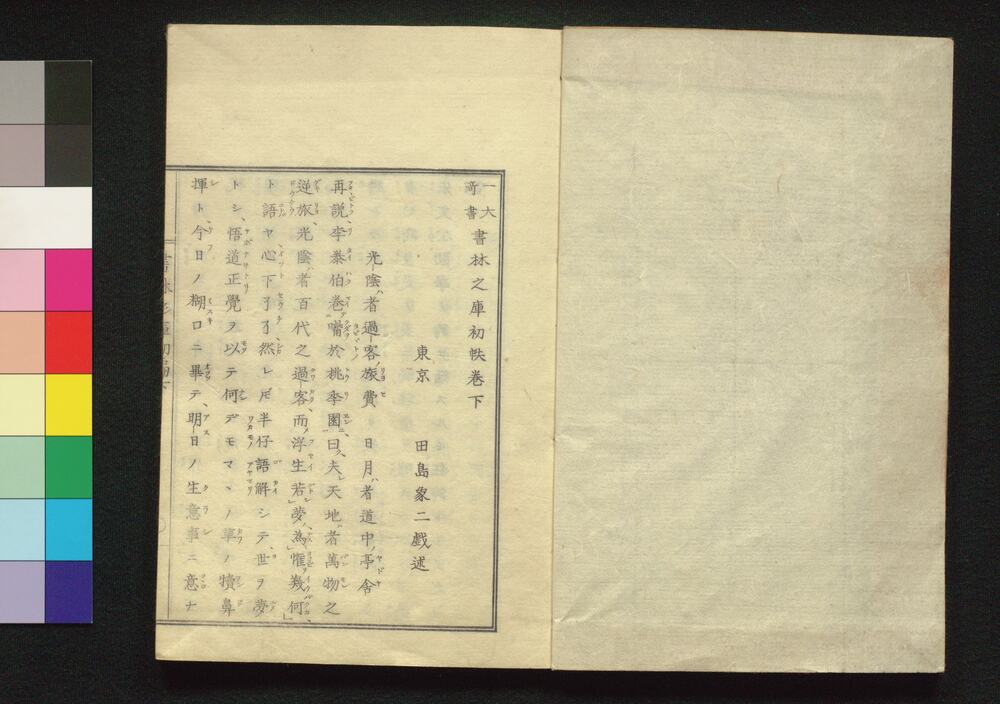 一大奇書 書林之庫初帙巻下
東京 田島象二戯述
光陰ハ者過客ノ旅費 日月ハ者道中ノ亭舎
再説李泰伯巻嘴於桃李園ニ曰夫レ天地ハ者萬物之
逆旅光陰ハ者百代之過客而浮生若夢為懽幾何
ト語ヤ心下了了然レ𪜈半仔語解シテ世ヲ夢
トシ悟道正覺ヲ以テ何デモマヽノ革ノ犢鼻
揮ト今日ノ糊口ニ畢テ明日ノ生意事ニ意ナ